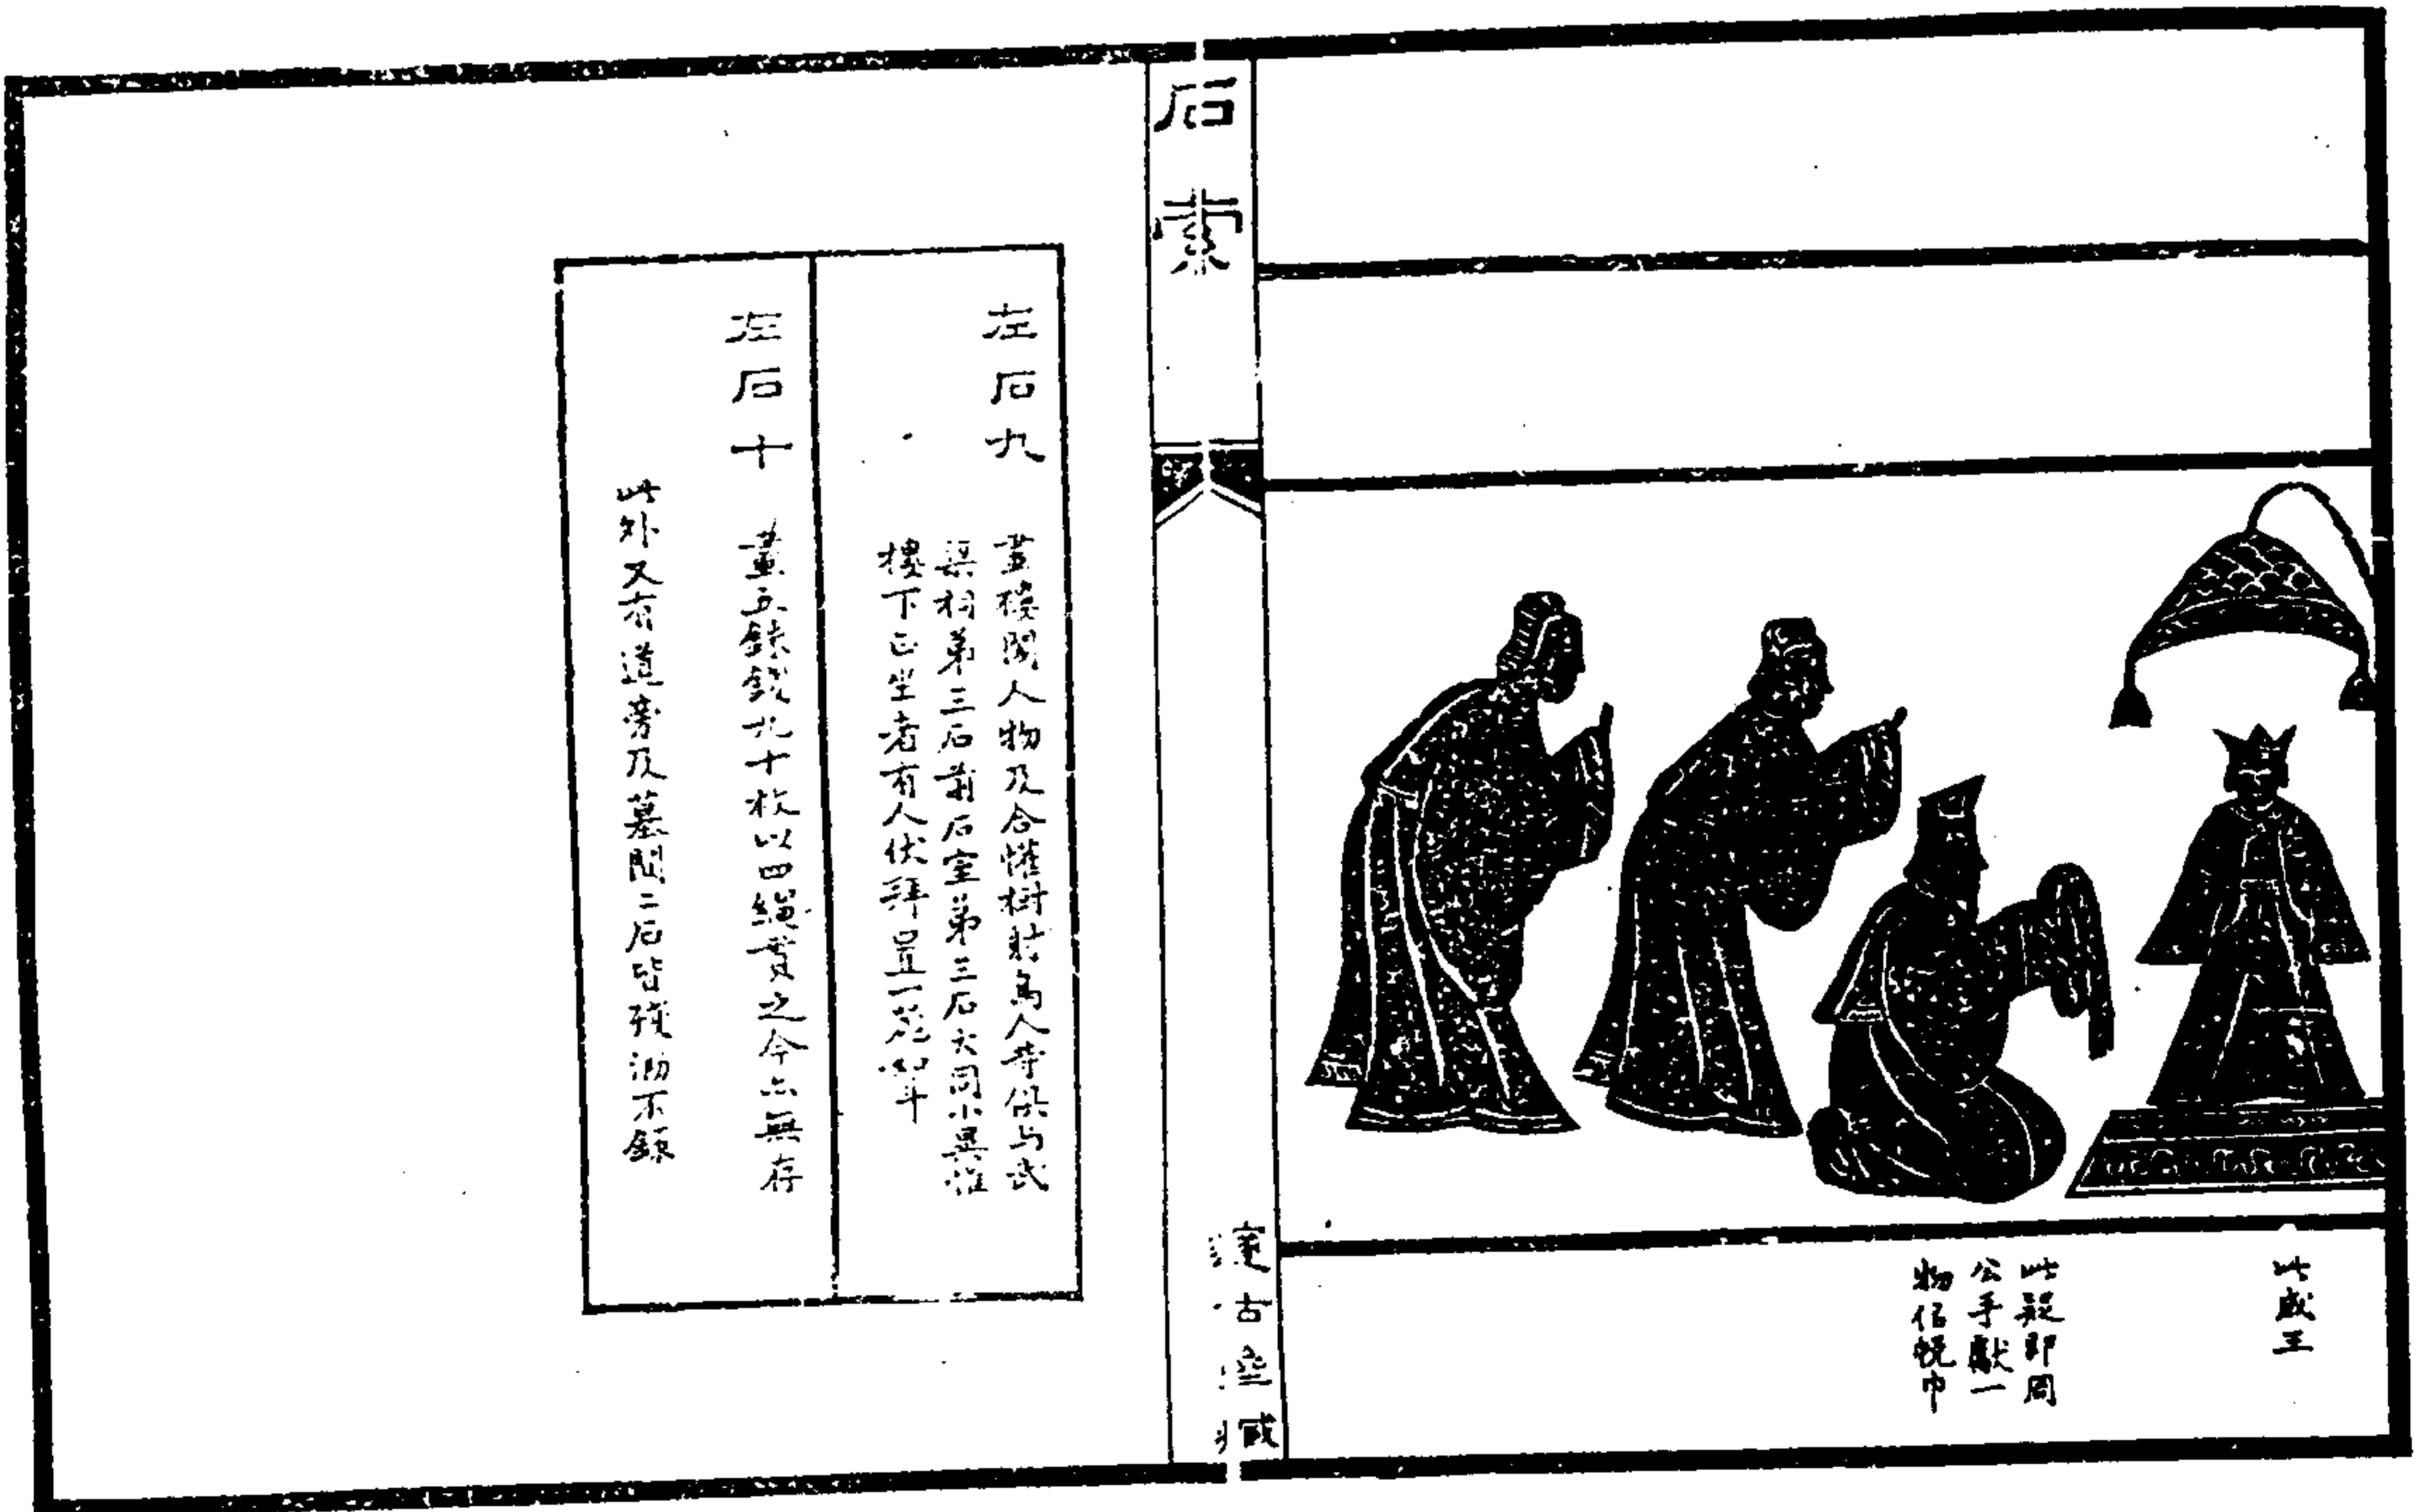 此成王
此疑即周
公手獻一
物佀帨巾
石索
古 藏
左石九
畫樓閣人物及合懽樹射鳥人等俱与武
梁祠弟三石前石室弟三石大同小異惟
樓下正坐者有人伏拜且一
左石十
畫五銖錢九十枚以四繩貫之今亦無存
此外又有道旁及墓間二石皆殘泐不錄